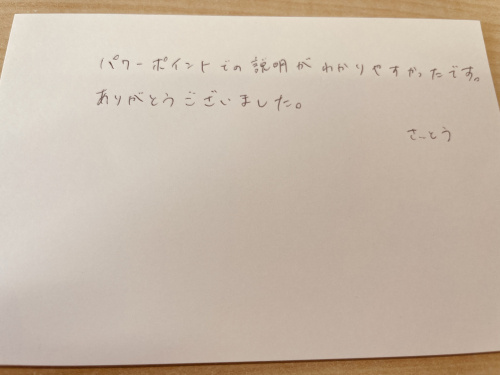 パワーポイントでの説明がわかりやすかったです。
ありがとうございました。
さとう